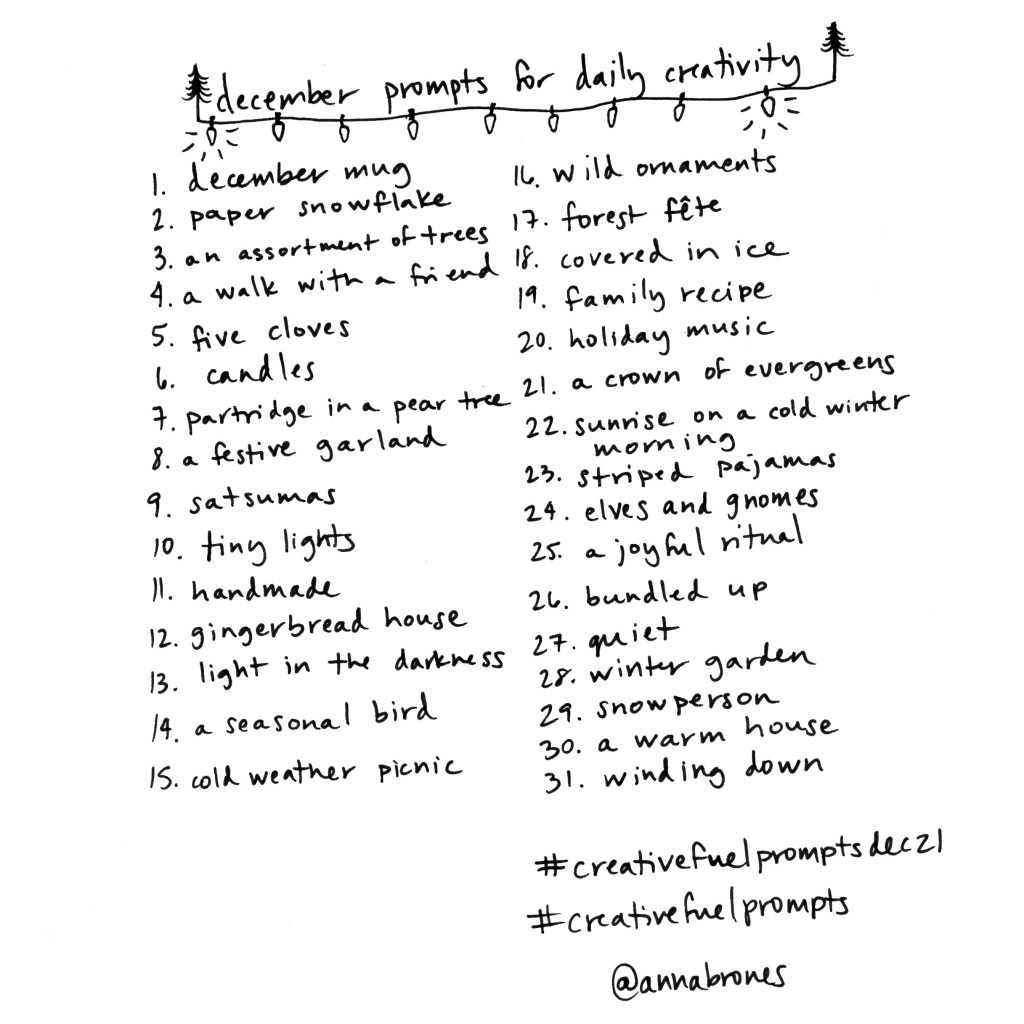 december prompts for daily creativity
1. december mug
2. paper snowflake
3. an assortment of trees
4. a walk with a friend
5. five cloves
6. candles
7. partridge in a pear tree
8. a festive garland
9. satsumas
10. tiny lights
11. handmade
12. gingerbread house
13. light in the darkness
14. a seasonal bird
15. cold weather picnic
16. wild ornaments
17. forest fête
18. covered in ice
19. family recipe
20. holiday music
21. a crown of evergreens
22. sunrise on a cold winter
morning
23. striped pajamas
24. elves and gnomes
25. a joyful ritual
26. bundled up
27. quiet
28. winter garden
29. snowperson
30. a warm house
31. winding down
#creativefuelpromptsdec21
#creativefuelprompts
@annabrones